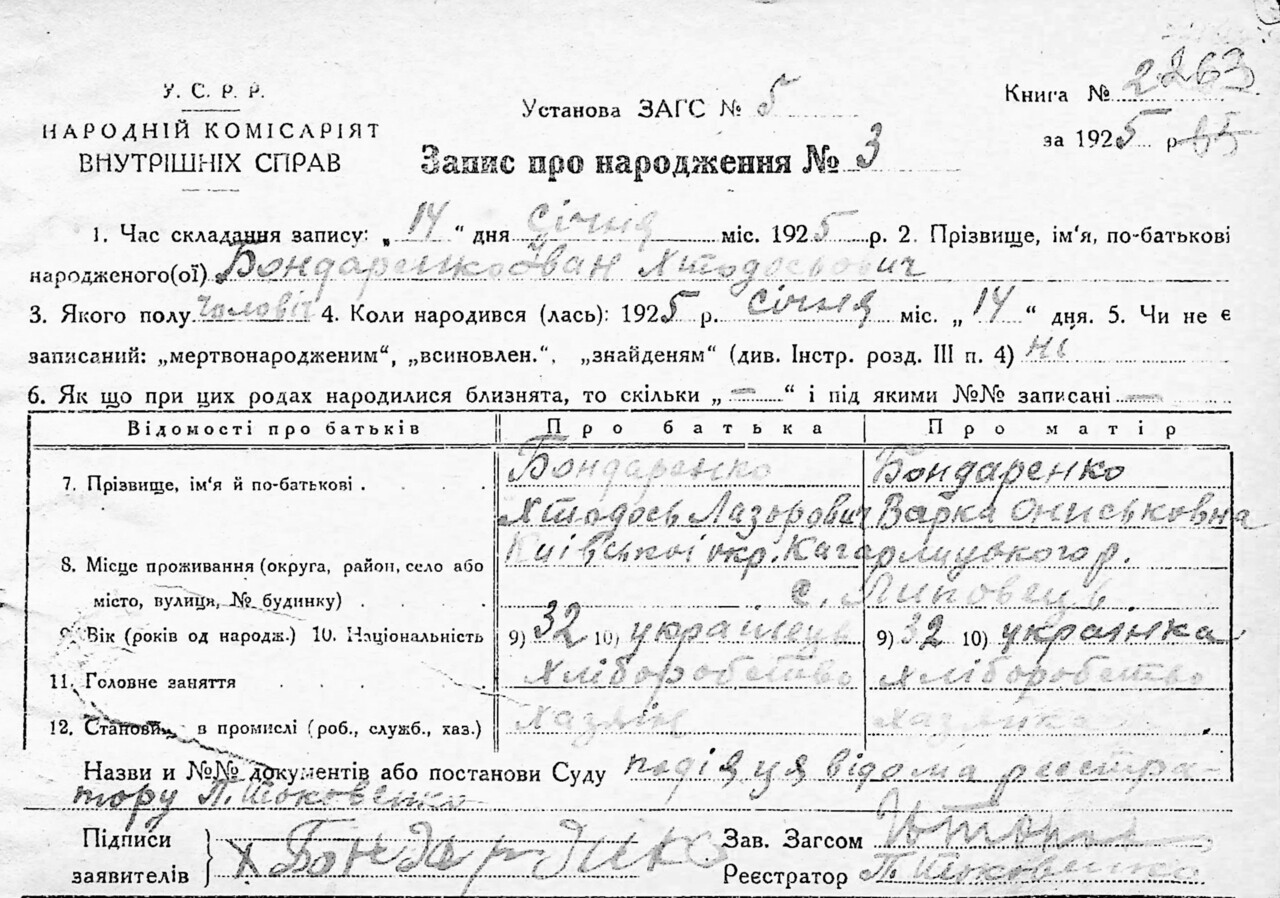 У. С. Р. Р.
НАРОДНІЙ КОМІСАРІЯТ
ВНУТРІШНІХ СПРАВ
Установа ЗАГС № 5
Книга № 2263
за 1925 р
Запис про народження № 3
1. Час складання запису: „14“ дня січня міс. 1925 р. 2. Прізвище, ім'я, по-батькові
народженого(ої) Бондаренко Іван Хтодосьович
3. Якого полу чоловіч 4. Коли народився (лась): 1925 р. січня міс. „14“ дня. 5. Чи не є
записаний: „мертвонародженим“, „всиновлен.“, „знайденям“ (див. Інстр. розд. III п. 4) ні
6. Як що при цих родах народилися близнята, то скільки „—“ і під якими №№ записані —
Відомості про батьків Про батька Про матір
7. Прізвище, ім'я й по-батькові . . . . Бондаренко Бондаренко
Хтодось Лазорович Варка Ониськовна
8. Місце проживання (округа, район, село або Київської окр. Кагарлицького р.
місто, вулиця, № будинку) . . . . с. Липовець
9. Вік (років од народж.) 10. Національність 9) 32 10) українець 9) 32 10) українка
11. Головне заняття . . . . Хліборобство Хліборобство
12. Станови. в промислі (роб., служб., хаз.) хазяїн хазяйка
Назви и №№ документів або постанови Суду подія ця відома реєстра-
тору П.
Підписи
заявителів
Зав. Загсом
Реєстратор П.